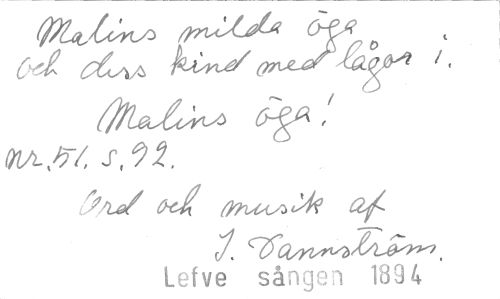 Malins milda öga
och dess kind med lågor i.
Malins öga!
nr. 51. s. 92.
Ord och musik af
I. Dannström.
Lefve sången 1894